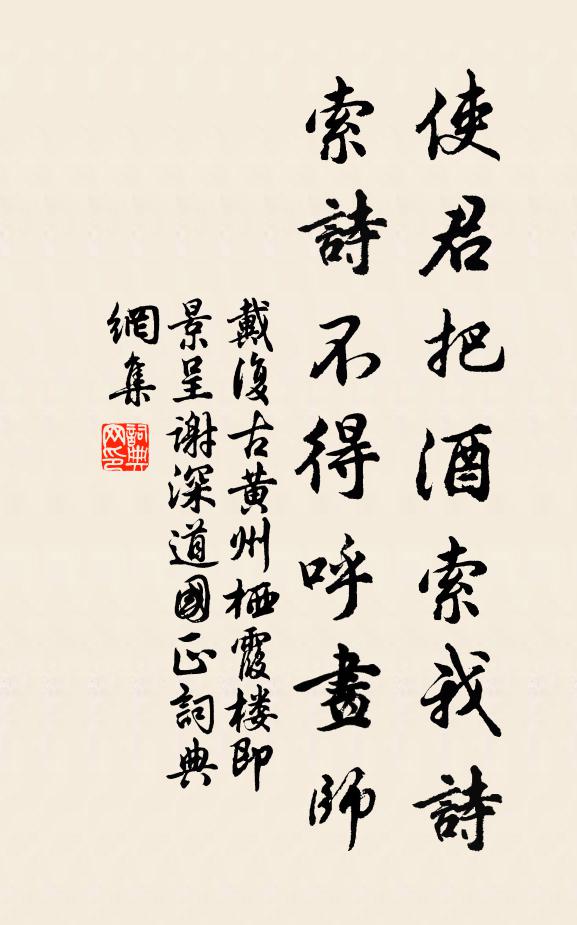 使君把酒索我詩
索詩不得呼畫師
戴復古黄州栖霞楼即
景呈谢深道國正詞典
網集
詞典
网印